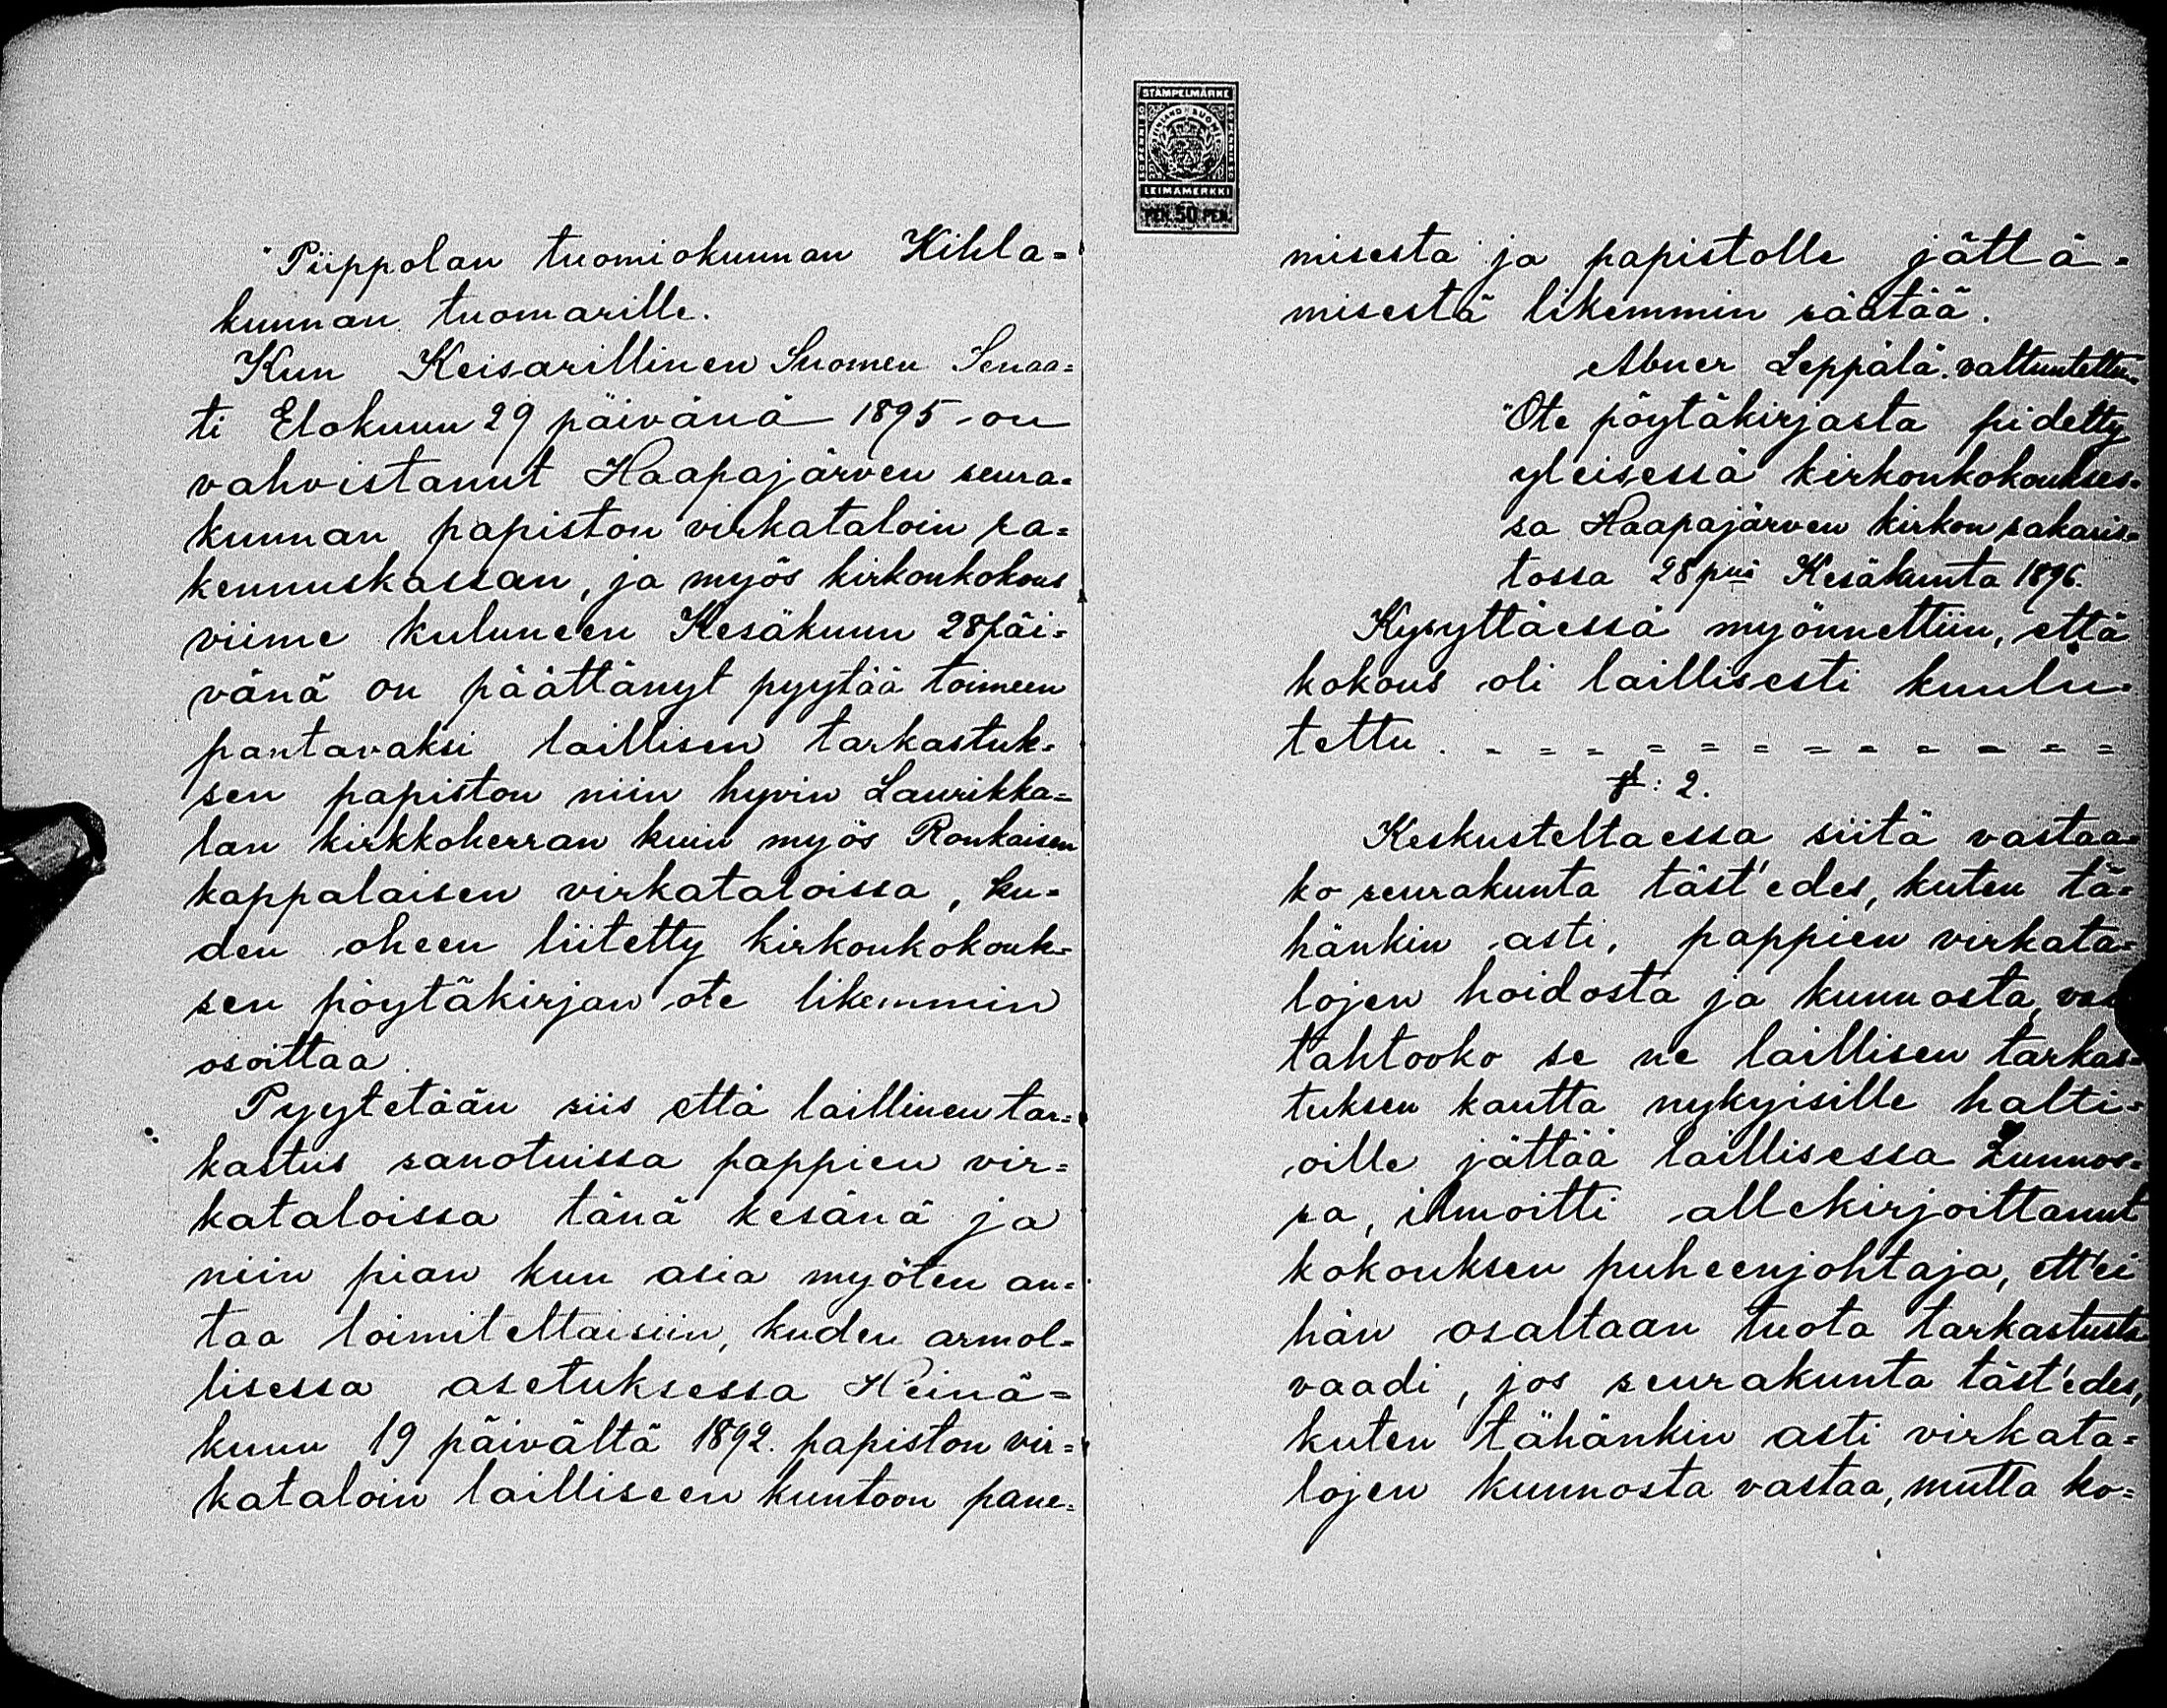 "Piippolan tuomiokunnan Kihla=
kunnan tuomarille.
Kun Keisarillinen Suomen Senaa=
ti Elokuun 29 päivänä 1895 on
vahvistanut Haapajärven seura=
kunnan papiston virkataloin ra=
kennuskassan, ja myös kirkonkokous
viime kuluneen Kesäkuun 28 päi=
vänä on päättänyt pyytää toimeen
pantavaksi laillisen tarkastuk=
sen papiston niin hyvin Laurikka=
lan kirkkoherran kuin myös Ronkaisen
kappalaisen virkataloissa, ku=
den oheen liitetty kirkonkokouk=
sen pöytäkirjan ote likemmin
osoittaa.
Pyytetään siis että laillinen tar=
kastus sanotuissa pappien vir=
kataloissa tänä kesänä ja
niin pian kun asia myöten an=
taa toimitettaisiin, kuden armol=
lisessa asetuksessa Heinä=
kuun 19 päivältä 1892. papiston vir=
kataloin lailliseen kuntoon pane=
STÄMPELMÄRKE
FINLAND SUOMI
50 PENNI 50
50 PENNIÄ 50
LEIMAMERKKI
PEN. 50 PEN.
misesta ja papistolle jättä=
misestä likemmin säätää.
Abner Leppälä. valtuutettu.
"Ote pöytäkirjasta pidetty
yleisessä kirkonkokoukses=
sa Haapajärven kirkon sakaris=
tossa 28 p:nä Kesäkuuta 1896.
Kysyttäessä myönnettiin, että
kokous oli laillisesti kuulu=
tettu. - = = = = = = = = = = = =
§: 2.
Keskusteltaessa siitä vastaa=
ko seurakunta täst'edes, kuten tä=
hänkin asti, pappien virkata=
lojen hoidosta ja kunnosta,
tahtooko se ne laillisen tarkas=
tuksen kautta nykyisille halti=
oille jättää laillisessa kunnos=
sa, ilmoitti allekirjoittanut
kokouksen puheenjohtaja, ett'ei
hän osaltaan tuota tarkastusta
vaadi, jos seurakunta täst'edes,
kuten tähänkin asti virkata=
lojen kunnosta vastaa, mutta ko=